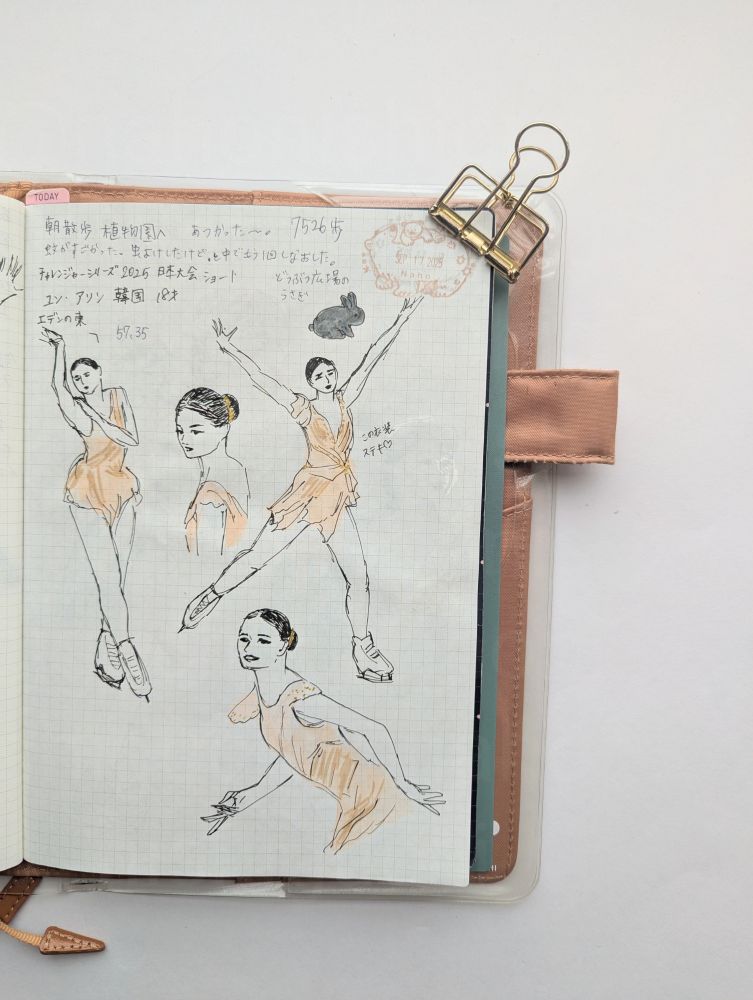 TODAY
朝散歩 植物園へ あつかった〜。 7526歩
蚊がすごかった。虫よけしたけど、と中でもう1回しなおした。
チャレンジャーシリーズ2025 日本大会 ショート
どうぶつ広場の
うさぎ
ユン・アソン 韓国 18才
エデンの東
57.35
17 2025
Naho
この衣装
ステキ♡